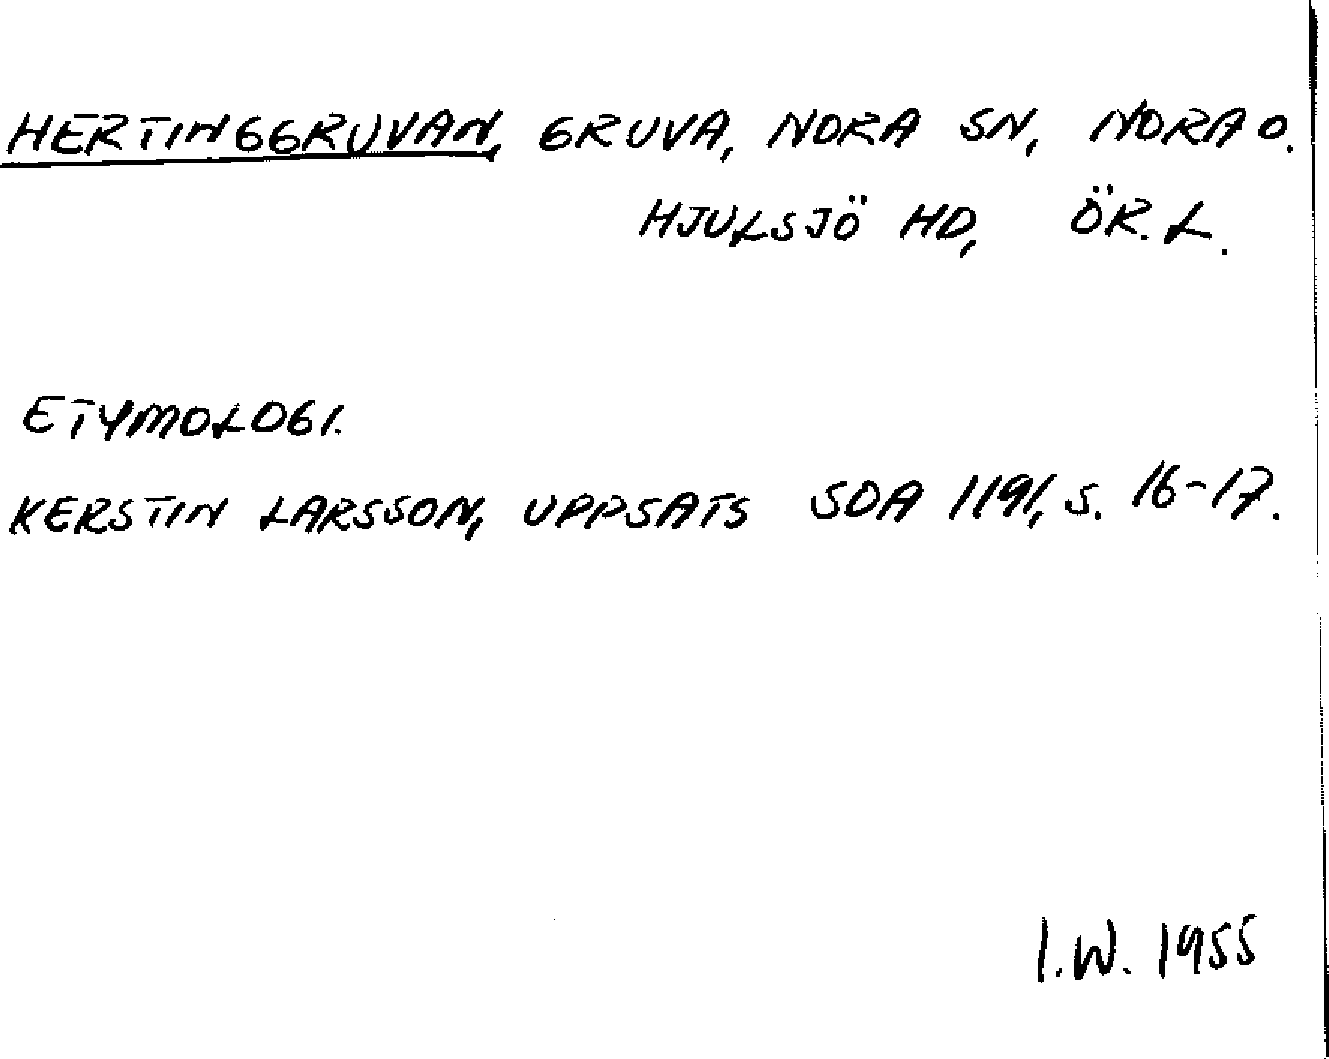 HERTINGGRUVAN, GRUVA, NORA SN, NORA O.
HJULSJÖ HD, ÖR. L.
ETYMOLOGI.
KERSTIN LARSSON, UPPSATS SOA 1191, S. 16-17.
I.W. 1955